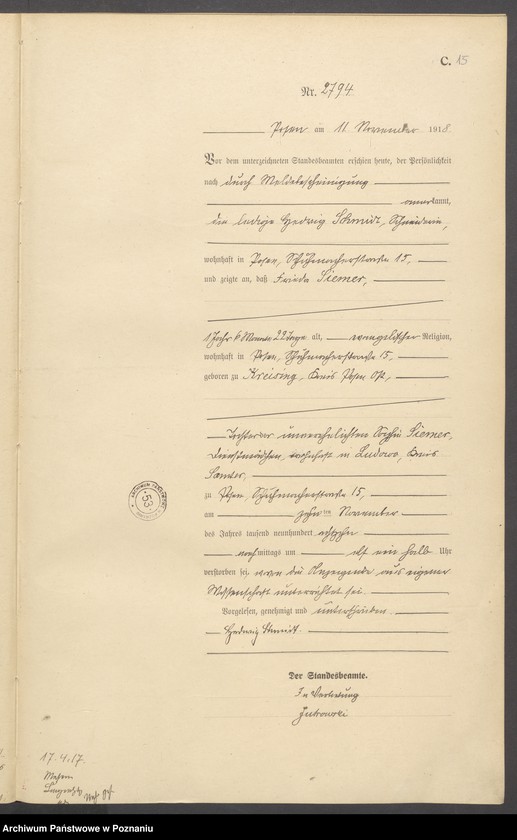 C. 15
Nr. 2794
Posen am 11. November 1918
Vor dem unterzeichneten Standesbeamten erschien heute, der Persönlichkeit
nach durch Meldebescheinigung
anerkannt,
die ledige Hedwig Schmidt, Schneiderin,
wohnhaft in Posen, Schuhmacherstraße 15,
und zeigte an, daß Frieda Siemer,
1 Jahr 6 Monate 22 Tage alt, evangelischer Religion,
wohnhaft in Posen, Schuhmacherstraße 15,
geboren zu Kreising, Kreis Posen Ost,
Tochter der unverehelichten Sophie Siemer,
Dienstmädchen, wohnhaft in Ludowo, Kreis
Samter,
zu Posen, Schuhmacherstraße 15,
am zehnten November
des Jahres tausend neunhundert achtzehn
nachmittags um elf ein halb Uhr
verstorben sei, wovon die Anzeigende aus eigener
Wissenschaft unterrichtet sei.
Vorgelesen, genehmigt und unterschrieben
Hedwig Schmidt.
Der Standesbeamte.
In Vertretung
ARCHIWUM PAŃSTWOWE
53
17.4.17.
Archiwum Państwowe w Poznaniu